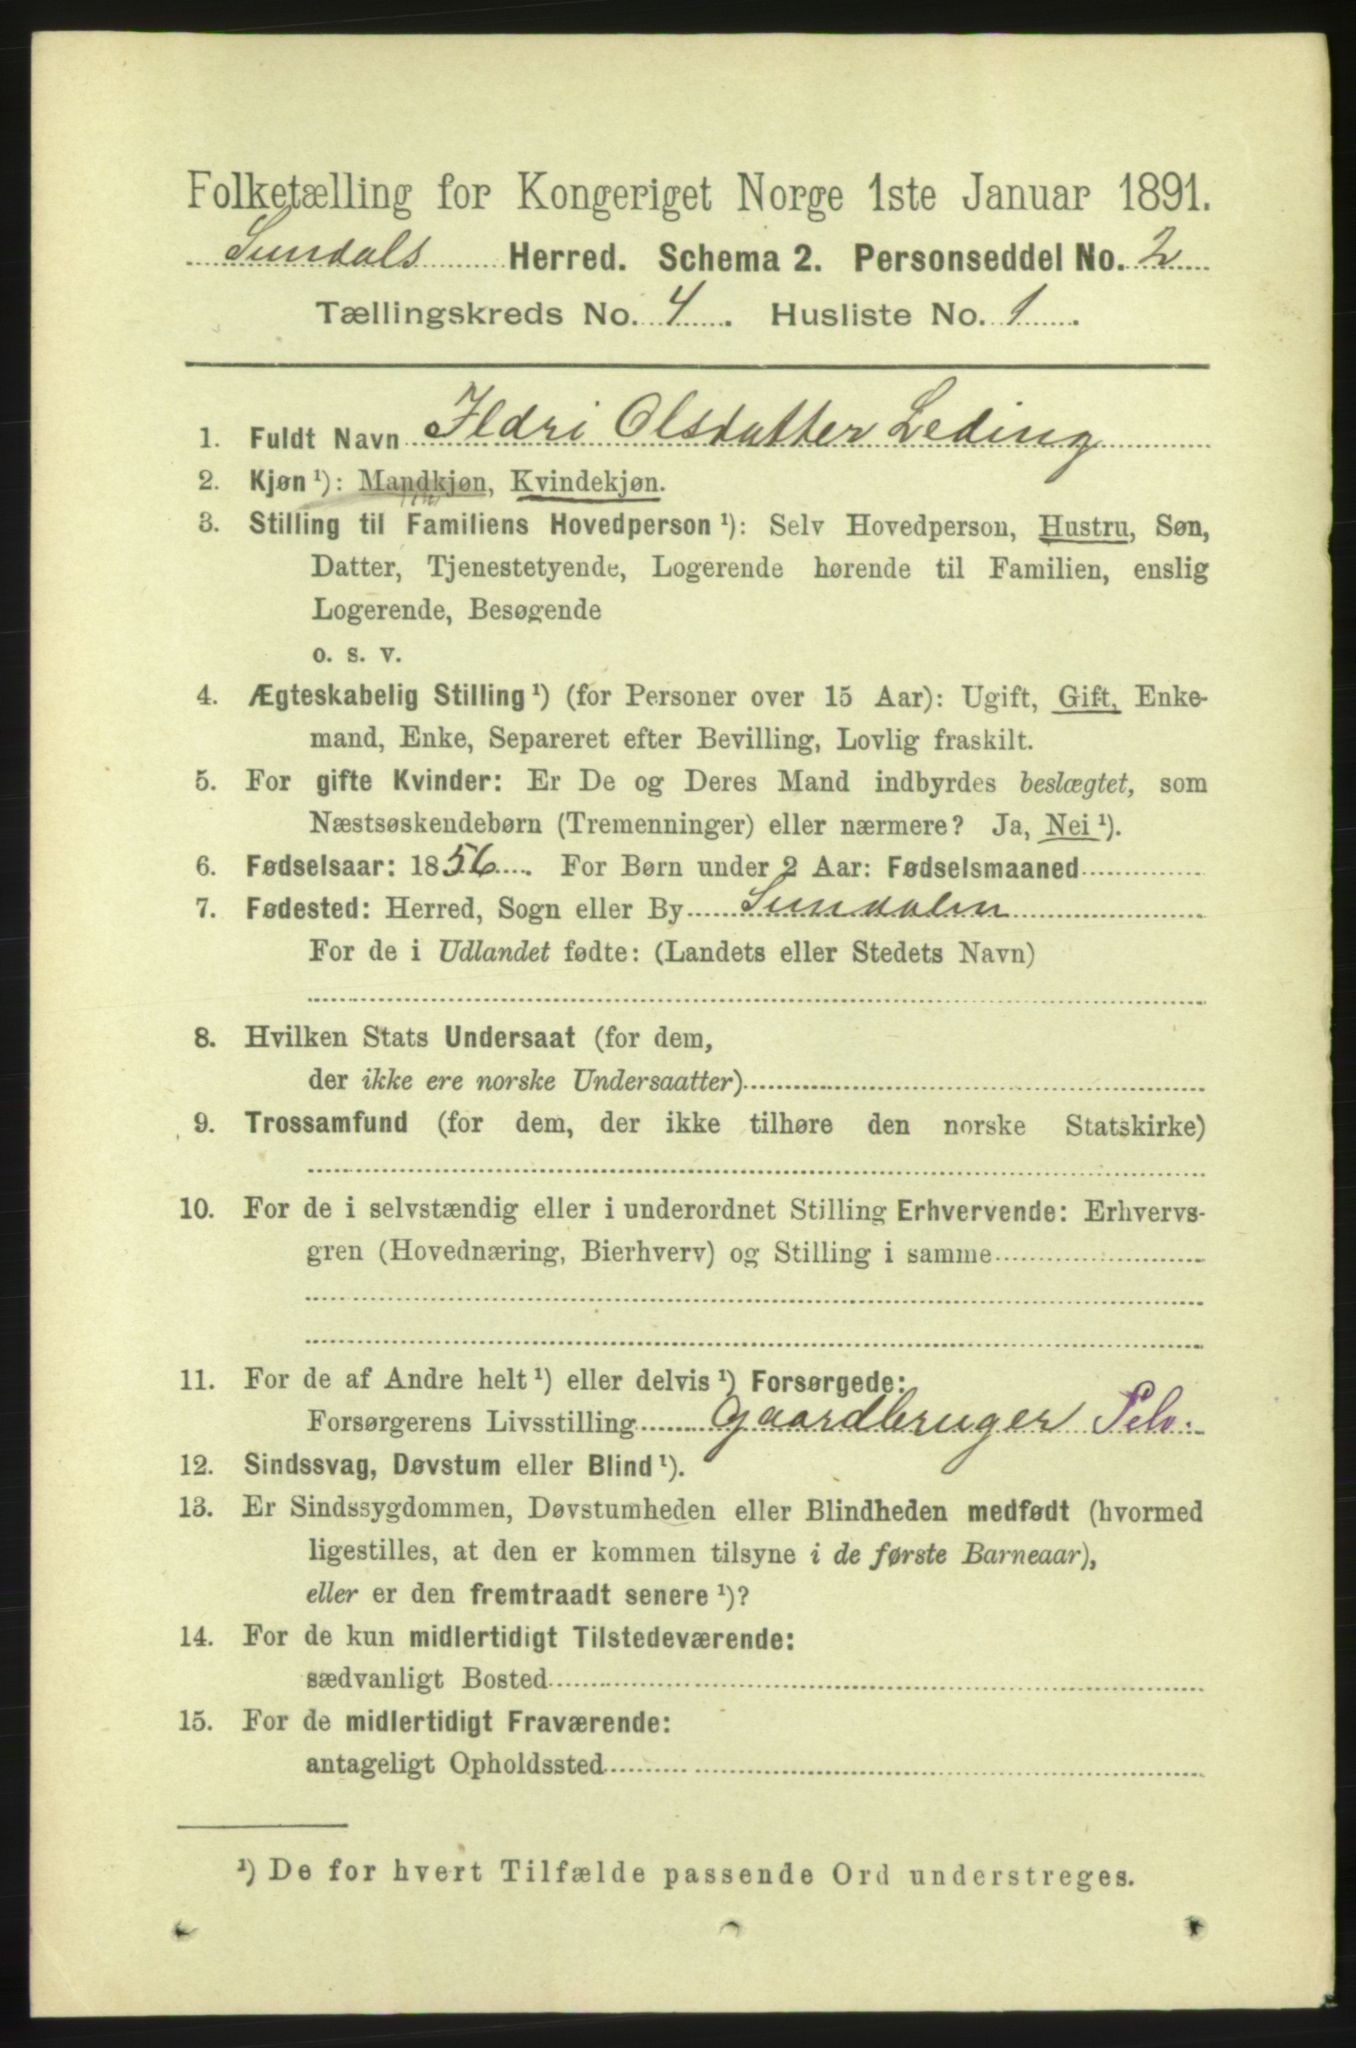 Folketælling for Kongeriget Norge 1ste Januar 1891.
Sundals Herred. Schema 2. Personseddel No. 2
Tællingskreds No. 4. Husliste No. 1.
1. Fuldt Navn Ildri Olsdatter Leding
2. Kjøn¹): Mandkjøn, Kvindekjøn.
3. Stilling til Familiens Hovedperson¹): Selv Hovedperson, Hustru, Søn,
Datter, Tjenestetyende, Logerende hørende til Familien, enslig
Logerende, Besøgende
o. s. v.
4. Ægteskabelig Stilling¹) (for Personer over 15 Aar): Ugift, Gift, Enke-
mand, Enke, Separeret efter Bevilling, Lovlig fraskilt.
5. For gifte Kvinder: Er De og Deres Mand indbyrdes beslægtet, som
Næstsøskendebørn (Tremenninger) eller nærmere? Ja, Nei¹).
6. Fødselsaar: 1856. For Børn under 2 Aar: Fødselsmaaned
7. Fødested: Herred, Sogn eller By Sundalen
For de i Udlandet fødte: (Landets eller Stedets Navn)
8. Hvilken Stats Undersaat (for dem,
der ikke ere norske Undersaatter)
9. Trossamfund (for dem, der ikke tilhøre den norske Statskirke)
10. For de i selvstændig eller i underordnet Stilling Erhvervende: Erhvervs-
gren (Hovednæring, Bierhverv) og Stilling i samme
11. For de af Andre helt¹) eller delvis¹) Forsørgede:
Forsørgerens Livsstilling Gaardbruger Selv.
12. Sindssvag, Døvstum eller Blind¹).
13. Er Sindssygdommen, Døvstumheden eller Blindheden medfødt (hvormed
ligestilles, at den er kommen tilsyne i de første Barneaar),
eller er den fremtraadt senere¹)?
14. For de kun midlertidigt Tilstedeværende:
sædvanligt Bosted
15. For de midlertidigt Fraværende:
antageligt Opholdssted
¹) De for hvert Tilfælde passende Ord understreges.